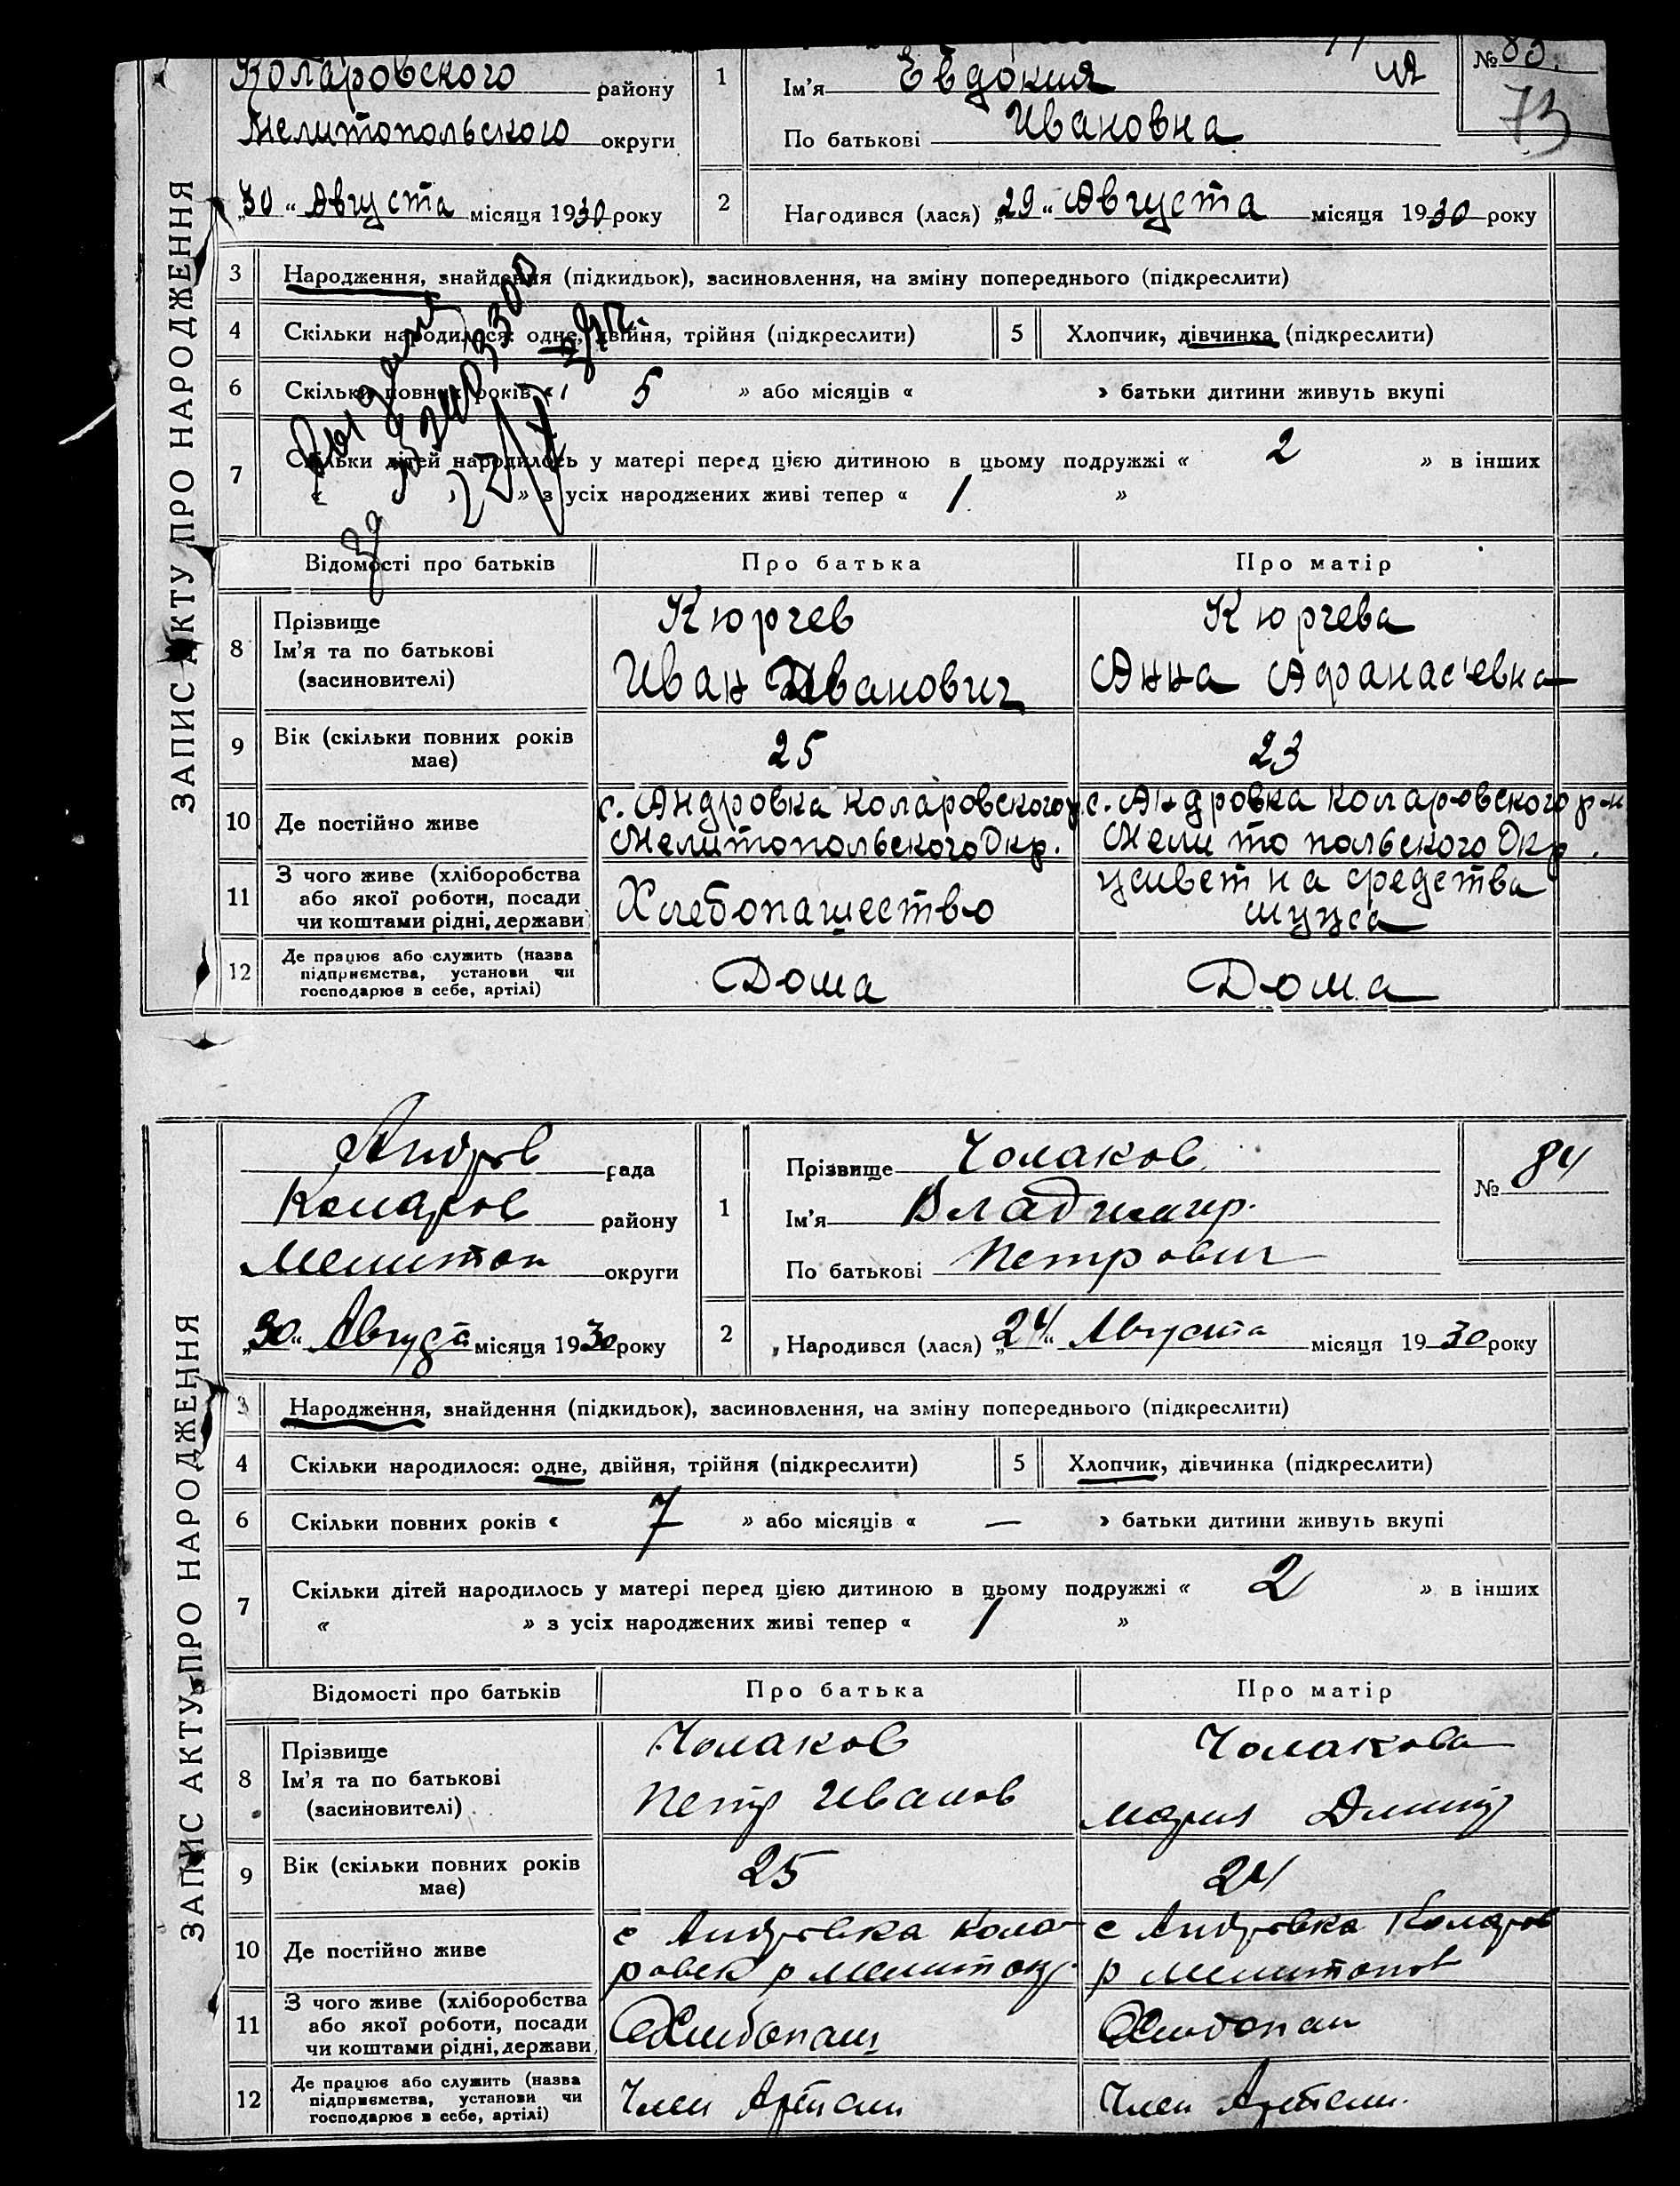 ЗАПИС АКТУ ПРО НАРОДЖЕННЯ
Коларовского району
Мелитопольского округи
„30“ Августа місяця 1930 року
1
Ім'я Евдокия
По батькові Ивановна
№ 83.
73
2 Народився (лася) „29“ Августа місяця 1930 року
3 Народження, знайдення (підкидьок), засиновлення, на зміну попереднього (підкреслити)
4 Скільки народилося: одне, двійня, трійня (підкреслити) 5 Хлопчик, дівчинка (підкреслити)
6 Скільки повних років « 5 » або місяців « » батьки дитини живуть вкупі
7 Скільки дітей народилось у матері перед цією дитиною в цьому подружжі « 2 » в інших
« » з усіх народжених живі тепер « 1 »
Відомості про батьків Про батька Про матір
8 Прізвище Ім'я та по батькові (засиновителі)
Кюрчев Иван Иванович
Кюрчева Анна Афанас'евна
9 Вік (скільки повних років має) 25 23
10 Де постійно живе
с. Андровка Коларовского р. Мелитопольского Окр.
с. Андровка Коларовского р-н Мелитопольского Окр.
11 З чого живе (хліборобства або якої роботи, посади чи коштами рідні, держави
Хлебопашество
живет на средства мужа
12 Де працює або служить (назва підприємства, установи чи господарює в себе, артілі)
Дома Дома
ЗАПИС АКТУ ПРО НАРОДЖЕННЯ
Андров рада
Коларов району
Мелитоп округи
„30“ Августа місяця 1930 року
1 Прізвище Чолаков
Ім'я Владимир.
По батькові Петрович
№ 84
2 Народився (лася) „24“ Августа місяця 1930 року
3 Народження, знайдення (підкидьок), засиновлення, на зміну попереднього (підкреслити)
4 Скільки народилося: одне, двійня, трійня (підкреслити) 5 Хлопчик, дівчинка (підкреслити)
6 Скільки повних років « 7 » або місяців « — » батьки дитини живуть вкупі
7 Скільки дітей народилось у матері перед цією дитиною в цьому подружжі « 2 » в інших
« » з усіх народжених живі тепер « 1 »
Відомості про батьків Про батька Про матір
8 Прізвище Ім'я та по батькові (засиновителі)
Чолаков Петр Иванов
Чолакова Мария Дмитр
9 Вік (скільки повних років має) 25 24
10 Де постійно живе
с Андровка Коларовск р Мелитоп
с Андровка Коларов р Мелитопов
11 З чого живе (хліборобства або якої роботи, посади чи коштами рідні, держави
Хлебопаш Хлебопаш
12 Де працює або служить (назва підприємства, установи чи господарює в себе, артілі)
Член Артели Член Артели.